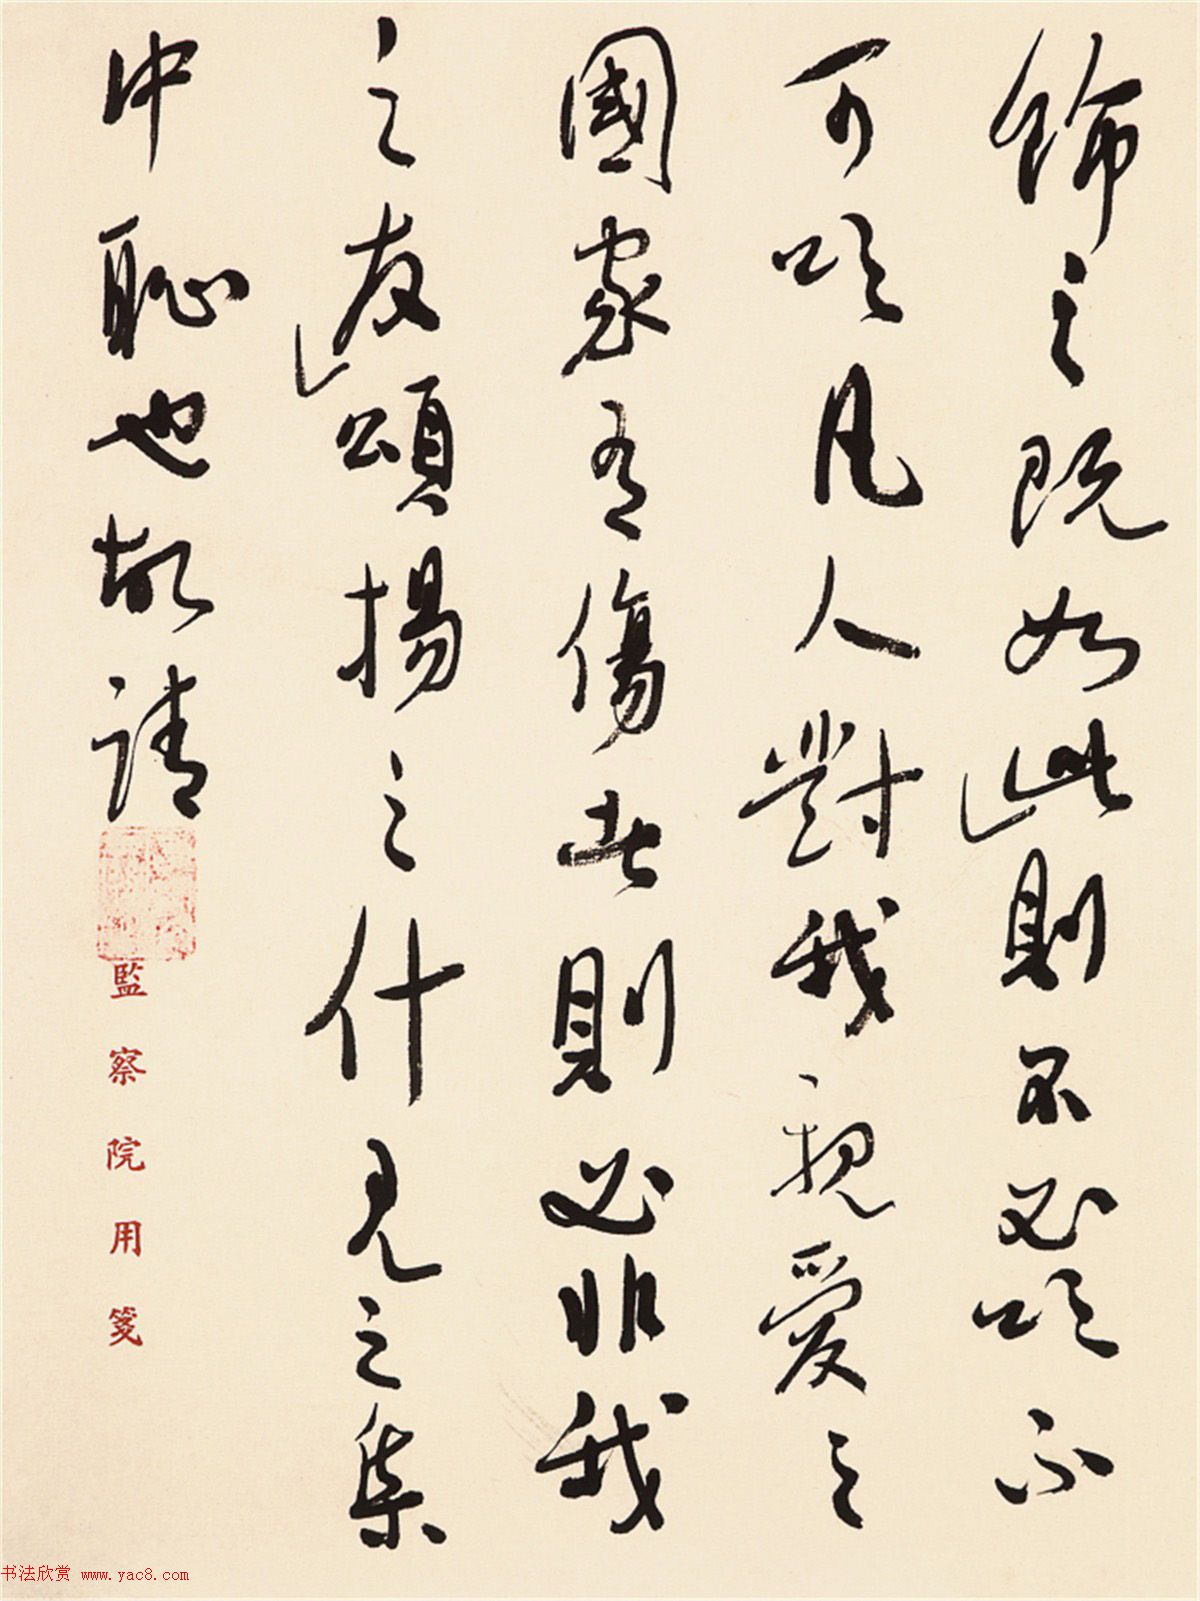 飾之既如此則不必咏不
可咏凡人對我親愛之
國家有傷者則必非我
之友頌揚之什見之集
中恥也故請
監察院用箋
书法欣赏 www.yac8.com